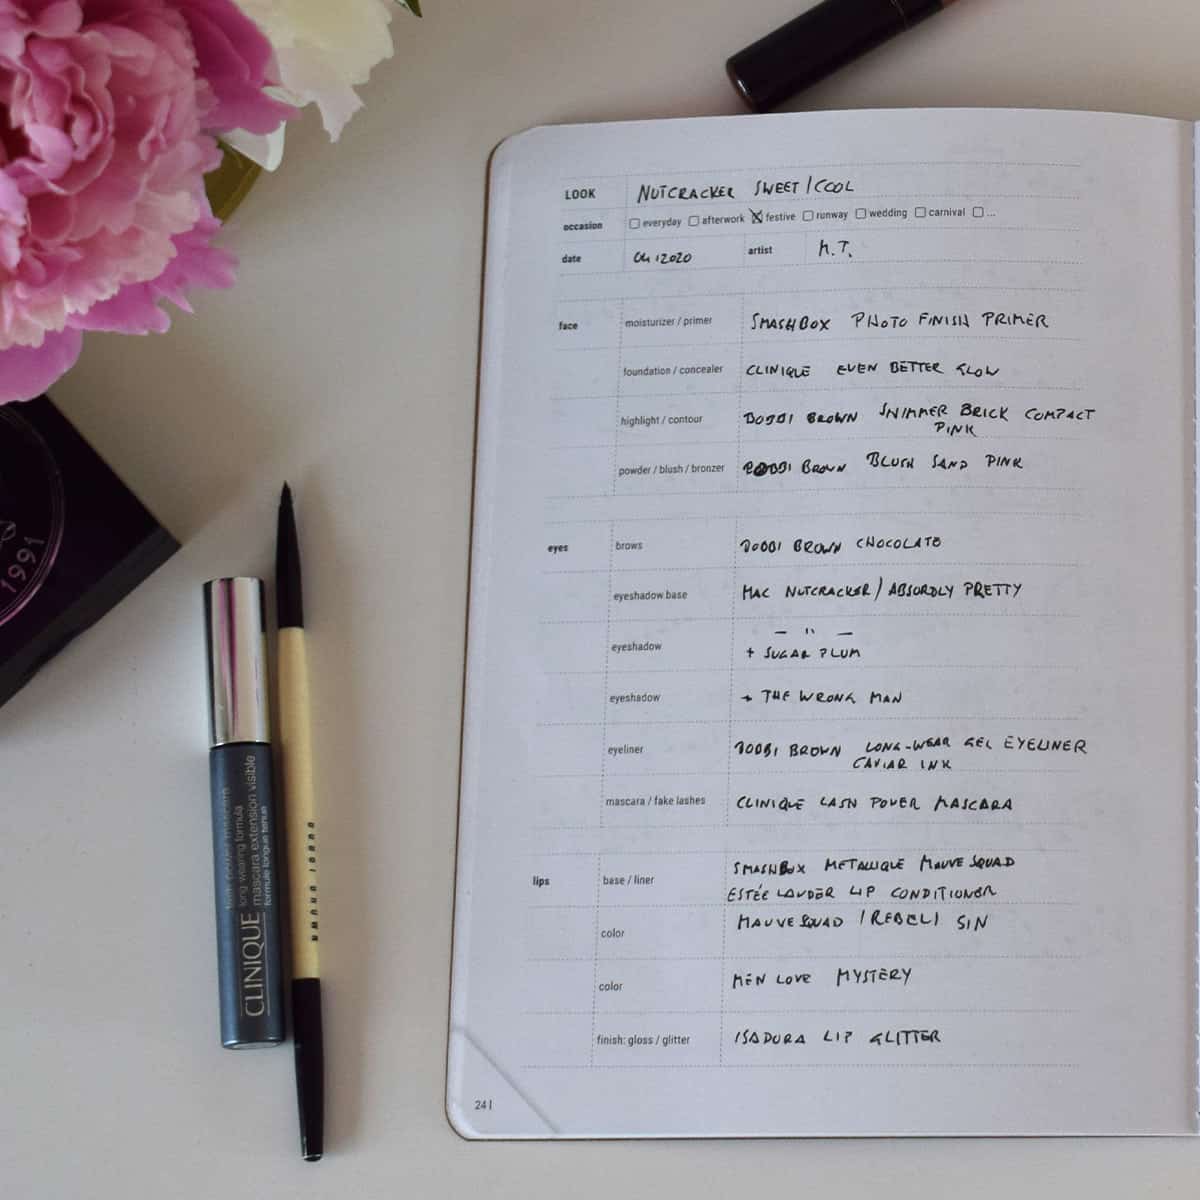 LOOK NUTCRACKER SWEET / COOL
occasion everyday afterwork festive runway wedding carnival ...
date 04 12020 artist M.T.
face moisturizer / primer SMASHBOX PHOTO FINISH PRIMER
foundation / concealer CLINIQUE EVEN BETTER GLOW
highlight / contour BOBBI BROWN SHIMMER BRICK COMPACT
PINK
powder / blush / bronzer BOBBI BROWN BLUSH SAND PINK
eyes brows BOBBI BROWN CHOCOLATE
eyeshadow base MAC NUTCRACKER / ABSORDLY PRETTY
eyeshadow — " —
+ SUGAR PLUM
eyeshadow + THE WRONG MAN
eyeliner BOBBI BROWN LONG-WEAR GEL EYELINER
CAVIAR INK
mascara / fake lashes CLINIQUE LASH POWER MASCARA
lips base / liner SMASHBOX METALLIQUE MAUVE SQUAD
ESTÉE LAUDER LIP CONDITIONER
color MAUVE SQUAD / REBEL / SIN
color MEN LOVE MYSTERY
finish: gloss / glitter ISADORA LIP GLITTER
24 |
1991
CLINIQUE
lash power mascara
long-wearing formula
mascara extension visible
formule longue tenue
BOBBI BROWN